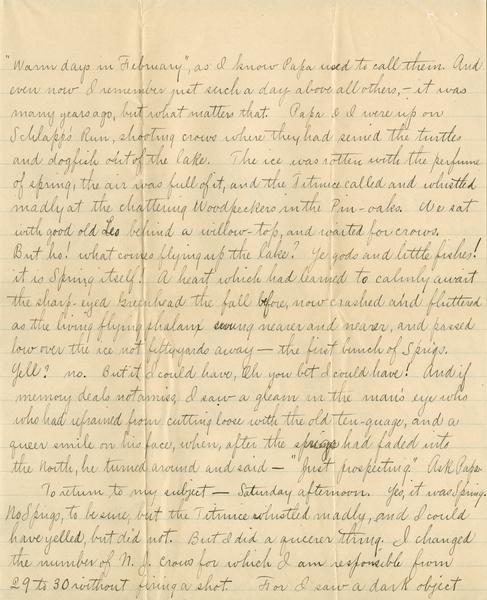 "Warm days in February", as I know Papa used to call them. And
even now I remember just such a day above all others, - it was
many years ago, but what matters that. Papa & I were up on
Schlapp's Run, shooting crows where they had seined the turtles
and dogfish out of the lake. The ice was rotten with the perfume
of spring, the air was full of it, and the Titmice called and whistled
madly at the chattering Woodpeckers in the Pin-oaks. We sat
with good old Leo behind a willow-top, and waited for crows.
But ho! what comes flying up the lake? Ye gods and little fishes!
it is Spring itself! A heart which had learned to calmly await
the sharp-eyed Greenhead the fall before, now crashed and fluttered
as the living flying phalanx swung nearer and nearer, and passed
low over the ice not fifty yards away — the first bunch of Sprigs.
Yell? no. But if I could have, Oh you bet I could have! And if
memory deals not amiss, I saw a gleam in the man's eye who
who had refrained from cutting loose with the old ten-guage, and a
queer smile on his face, when, after the sprigs had faded into
the North, he turned around and said — "Just prospecting." Ask Papa.
To return to my subject — Saturday afternoon. Yes, it was Spring.
No Sprigs, to be sure, but the Titmice whistled madly, and I could
have yelled, but did not. But I did a queerer thing. I changed
the number of N. J. crows for which I am responsible from
29 to 30 without firing a shot. For I saw a dark object